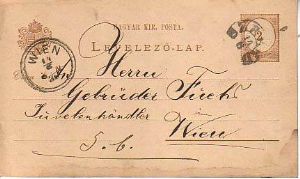 MAGYAR KIR. POSTA.
LEVELEZŐ-LAP.
WIEN
Herrn
Gebrüder Fuchs
Juvelenhändler
Wien